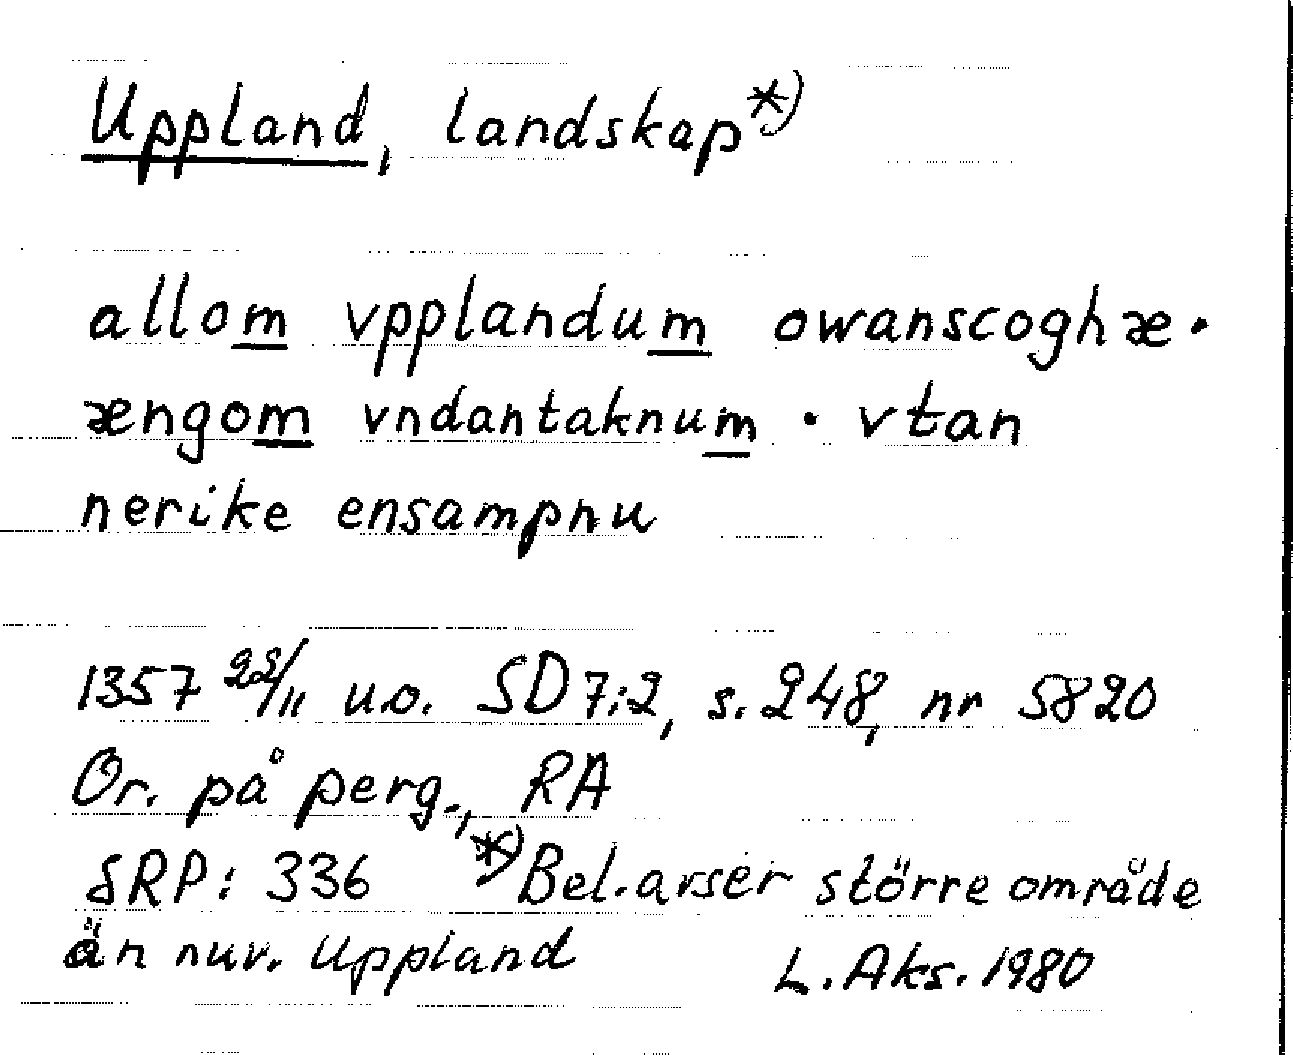 Uppland, landskap*)
allom vpplandum owanscoghæ ·
ængom vndantaknum · vtan
nerike ensampnu
1357 25/11 u.o. SD 7:2, s. 248, nr 5820
Or. på perg., RA
SRP: 336 *) Bel. avser större område
än nuv. Uppland L. Aks. 1980